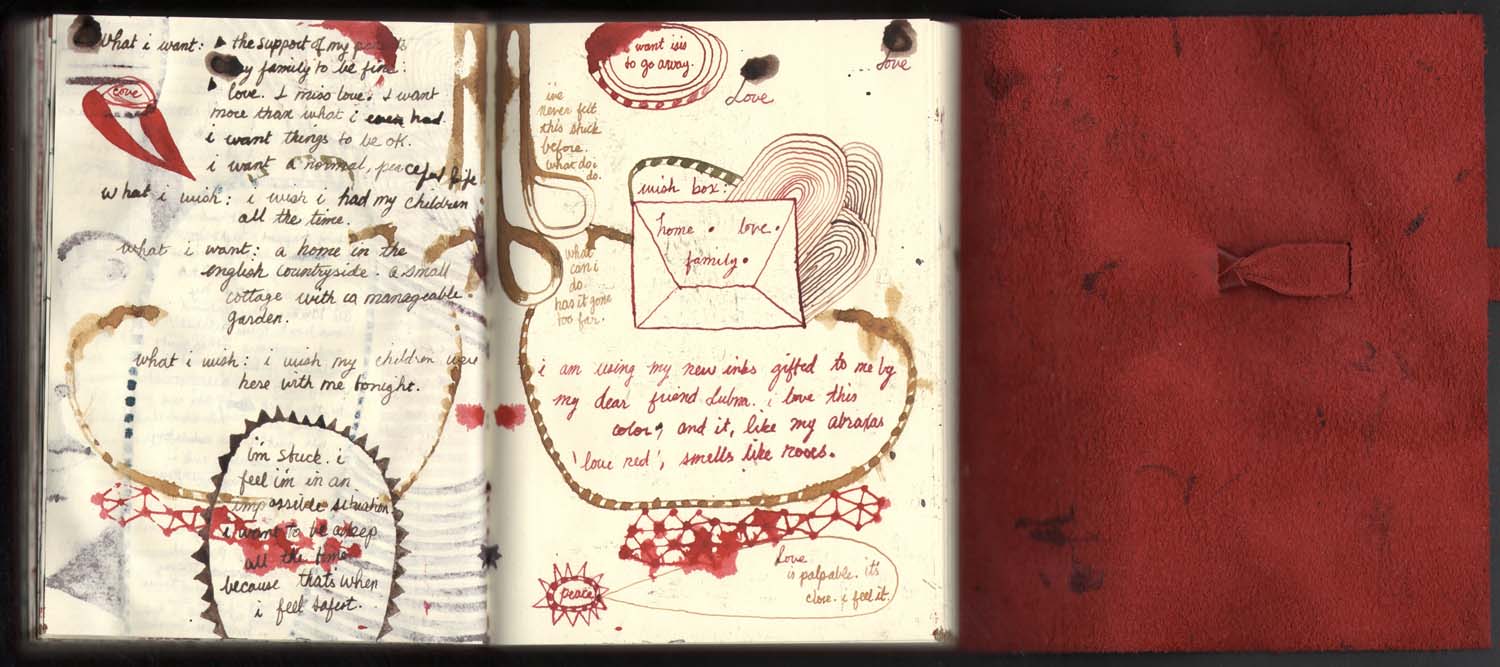 What i want: the support of my parents
my family to be fine.
love. I miss love. I want
more than what i even had.
i want things to be ok.
i want a normal, peaceful life
what i wish: i wish i had my children
all the time.
what i want: a home in the
english countryside. a small
cottage with a manageable
garden.
what i wish: i wish my children were
here with me tonight.
i'm stuck. i
feel i'm in an
impossible situation
i want to be asleep
all the time
because that's when
i feel safest.
love
want isis
to go away.
Love
love
i've
never felt
this stuck
before.
what do i
do.
what
can i
do.
has it gone
too far.
wish box:
home • love •
family •
i am using my new inks gifted to me by
my dear friend Lubna. i love this
color, and it, like my abraxas
'love red', smells like roses.
peace
Love
is palpable. it's
close. i feel it.